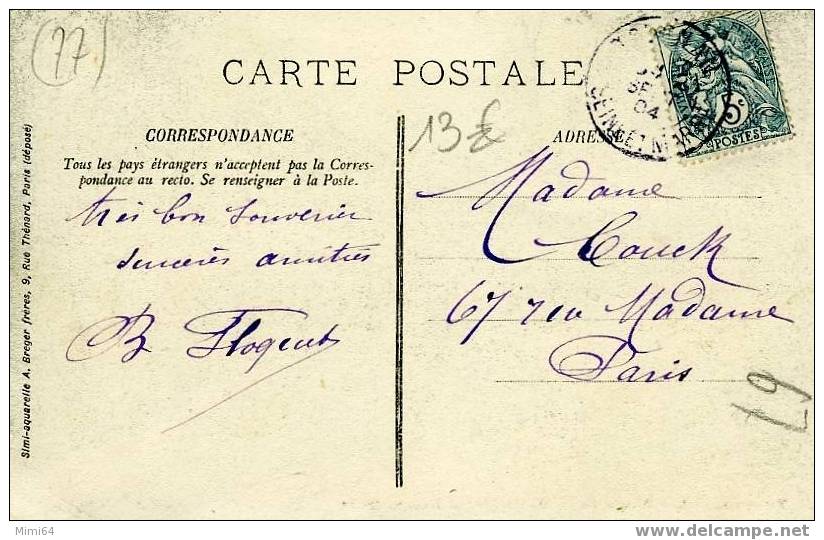 (77)
CARTE POSTALE
CORRESPONDANCE
Tous les pays étrangers n'acceptent pas la Corres-
pondance au recto. Se renseigner à la Poste.
très bon souvenir
sincères amitiés
B Flogeut
13 €
ADRESSE
Madame
Couck
67 rue Madame
Paris
SEINE ET MARNE
04
5c
POSTES
Simi-aquarelle A. Breger frères, 9, Rue Thénard, Paris (déposé)
Mimi64
www.delcampe.net